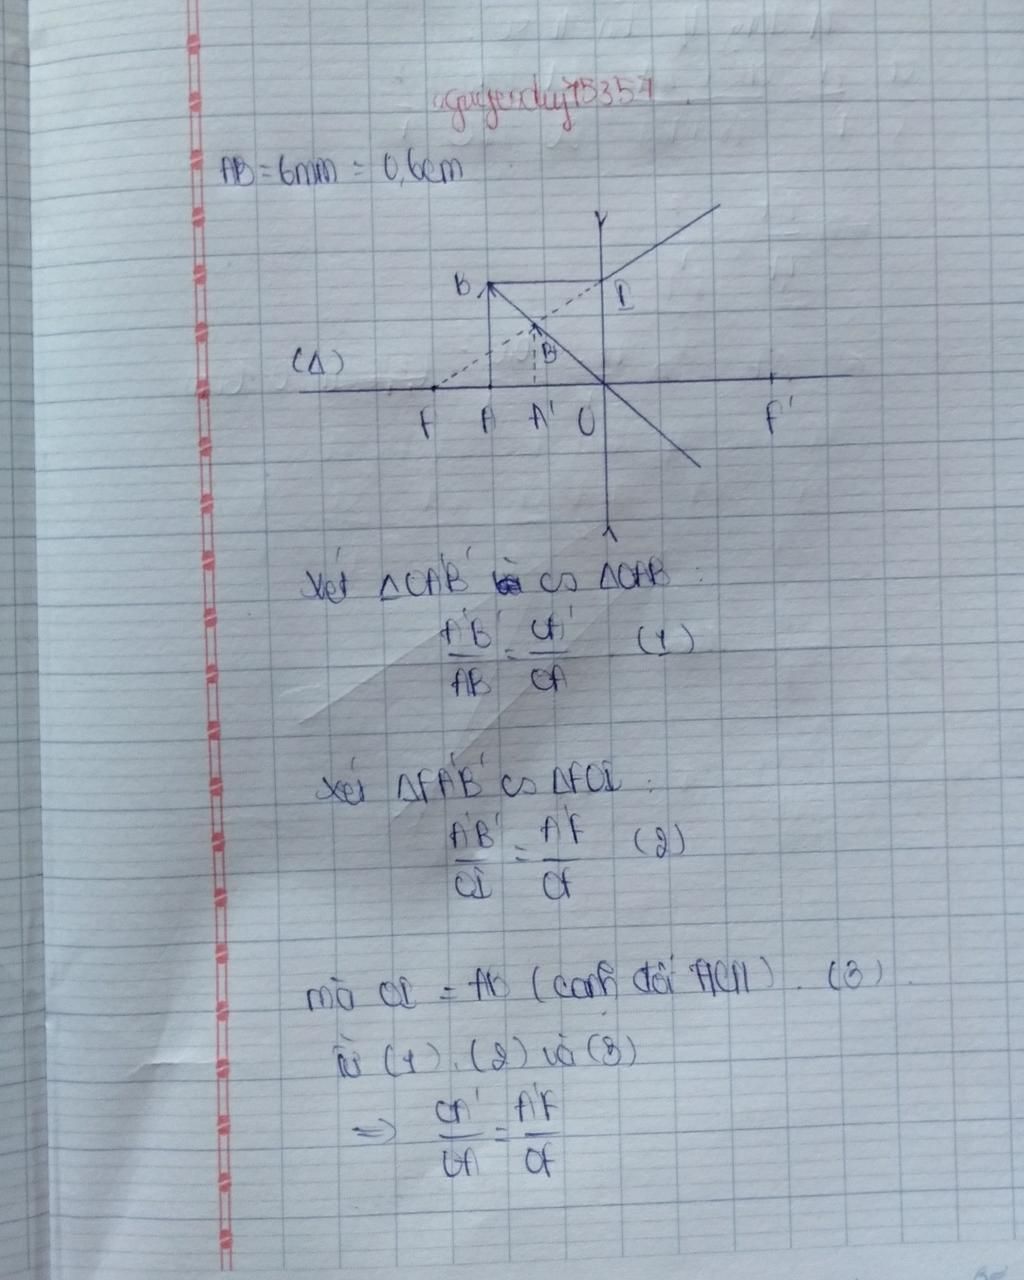 nguyenduy75357
AB = 6mm = 0,6cm
B
I
B'
(Δ)
F A A' O F'
Xét ΔOA'B' ∽ ΔOAB :
A'B'/AB = OA'/OA (1)
Xét ΔFA'B' ∽ ΔFOI :
A'B'/OI = A'F/OF (2)
mà OI = AB (cạnh đối HCN). (3)
từ (1), (2) và (3)
=> OA'/OA = A'F/OF